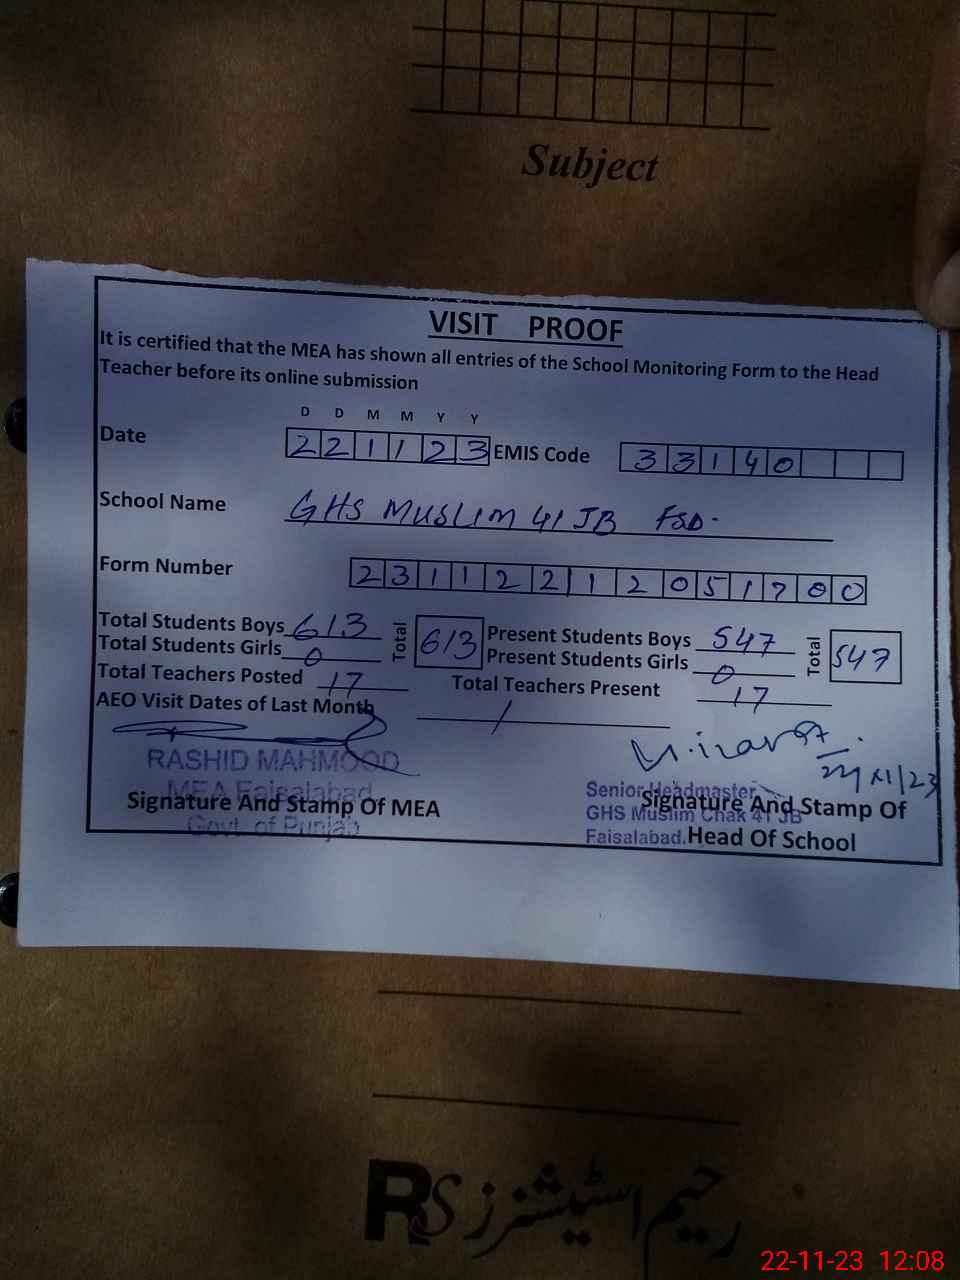 Subject
VISIT PROOF
It is certified that the MEA has shown all entries of the School Monitoring Form to the Head
Teacher before its online submission
D D M M Y Y
Date 221123 EMIS Code 33140
School Name GHS MUSLIM 41 JB FSD.
Form Number 23112212051700
Total Students Boys 613 Total 613 Present Students Boys 547 Total 547
Total Students Girls 0 Present Students Girls 0
Total Teachers Posted 17 Total Teachers Present 17
AEO Visit Dates of Last Month /
RASHID MAHMOOD
MEA Faisalabad
Govt. of Punjab
Signature And Stamp Of MEA
22/XI/23
Senior Headmaster
GHS Muslim Chak 41 JB
Faisalabad.
Signature And Stamp Of
Head Of School
RS رحیم اسٹیشنرز
22-11-23 12:08